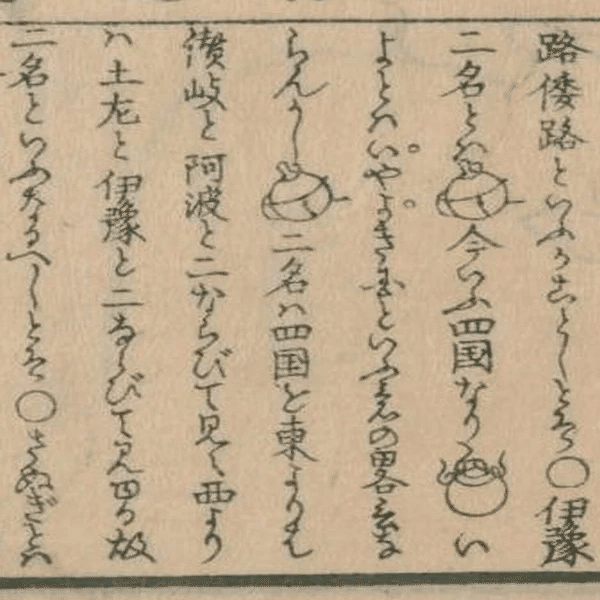 路倭路といふがごとしとぞ○伊豫
二名とは今いふ四国なりい
よとはいやよきといふの畧
らんかし二名は四国を東より
讃岐と阿波と二ならびて見え西より
ハ土左と伊豫と二ならびて見ゆる故
二名といふなるべしとぞ○さぬぎとハ